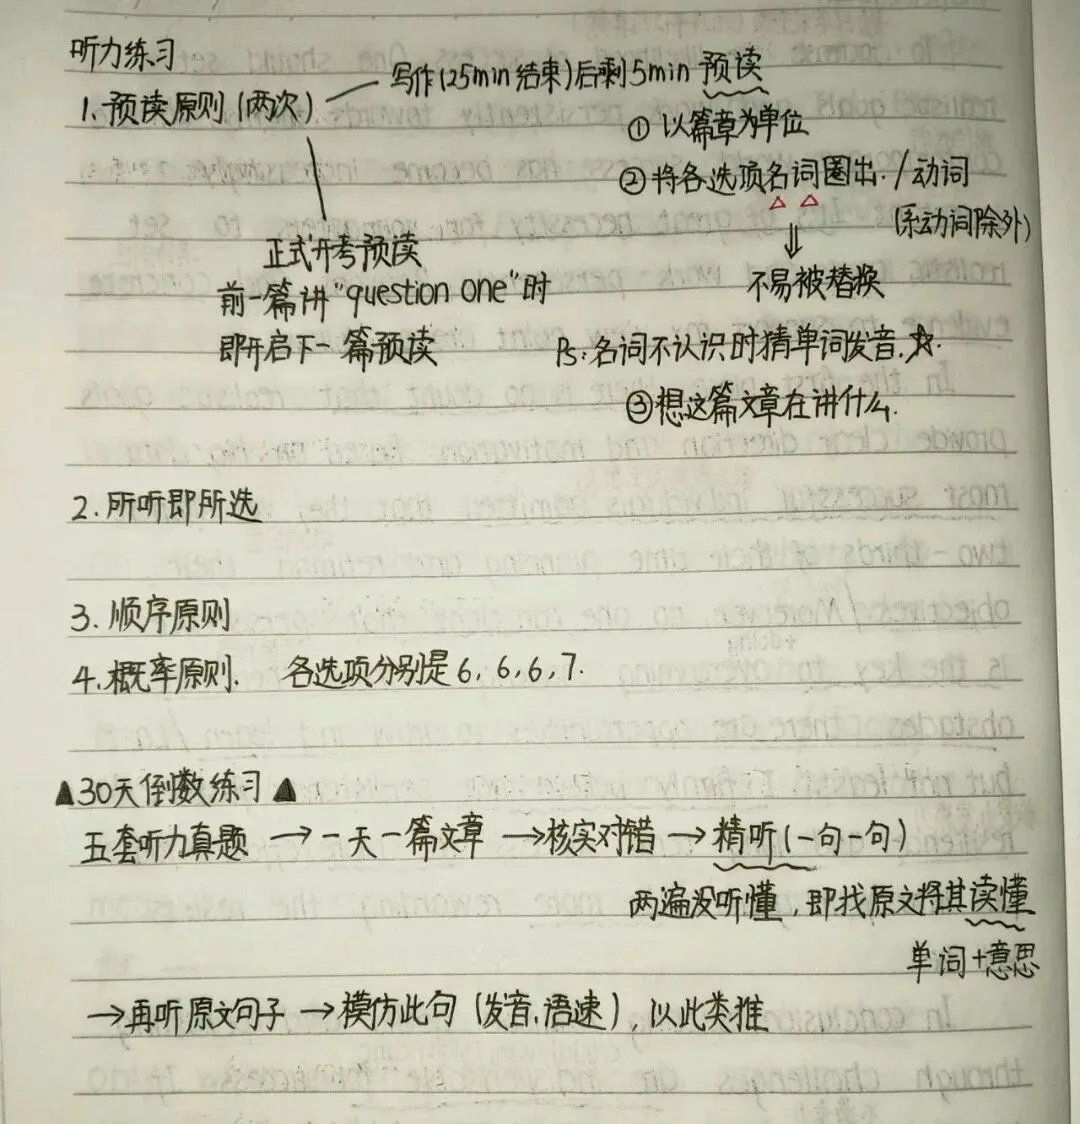 听力练习
1. 预读原则(两次) — 写作(25min结束)后剩5min预读
① 以篇章为单位
② 将各选项名词圈出. / 动词
(系动词除外)
⇓
不易被替换
正式开考预读
前一篇讲"question one"时
即开启下一篇预读
Ps: 名词不认识时猜单词发音. ☆.
③ 想这篇文章在讲什么.
2. 所听即所选
3. 顺序原则
4. 概率原则. 各选项分别是6, 6, 6, 7.
▲30天倒数练习▲
五套听力真题 → 一天一篇文章 → 核实对错 → 精听(一句一句)
两遍没听懂, 即找原文将其读懂
单词+意思
→再听原文句子 → 模仿此句 (发音, 语速), 以此类推